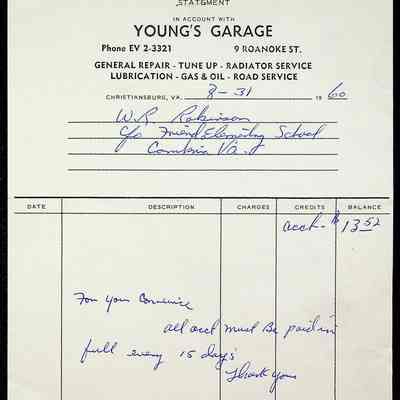 STATEMENT
IN ACCOUNT WITH
YOUNG'S GARAGE
Phone EV 2-3321 9 ROANOKE ST.
GENERAL REPAIR - TUNE UP - RADIATOR SERVICE
LUBRICATION - GAS & OIL - ROAD SERVICE
CHRISTIANSBURG, VA. 8-31 1960
W.R. Robinson
c/o Friend Elementry School
Cambria Va.
DATE DESCRIPTION CHARGES CREDITS BALANCE
acct. $13.52
For your Convenice
all acct must Be paid in
full every 15 day's
Thank you